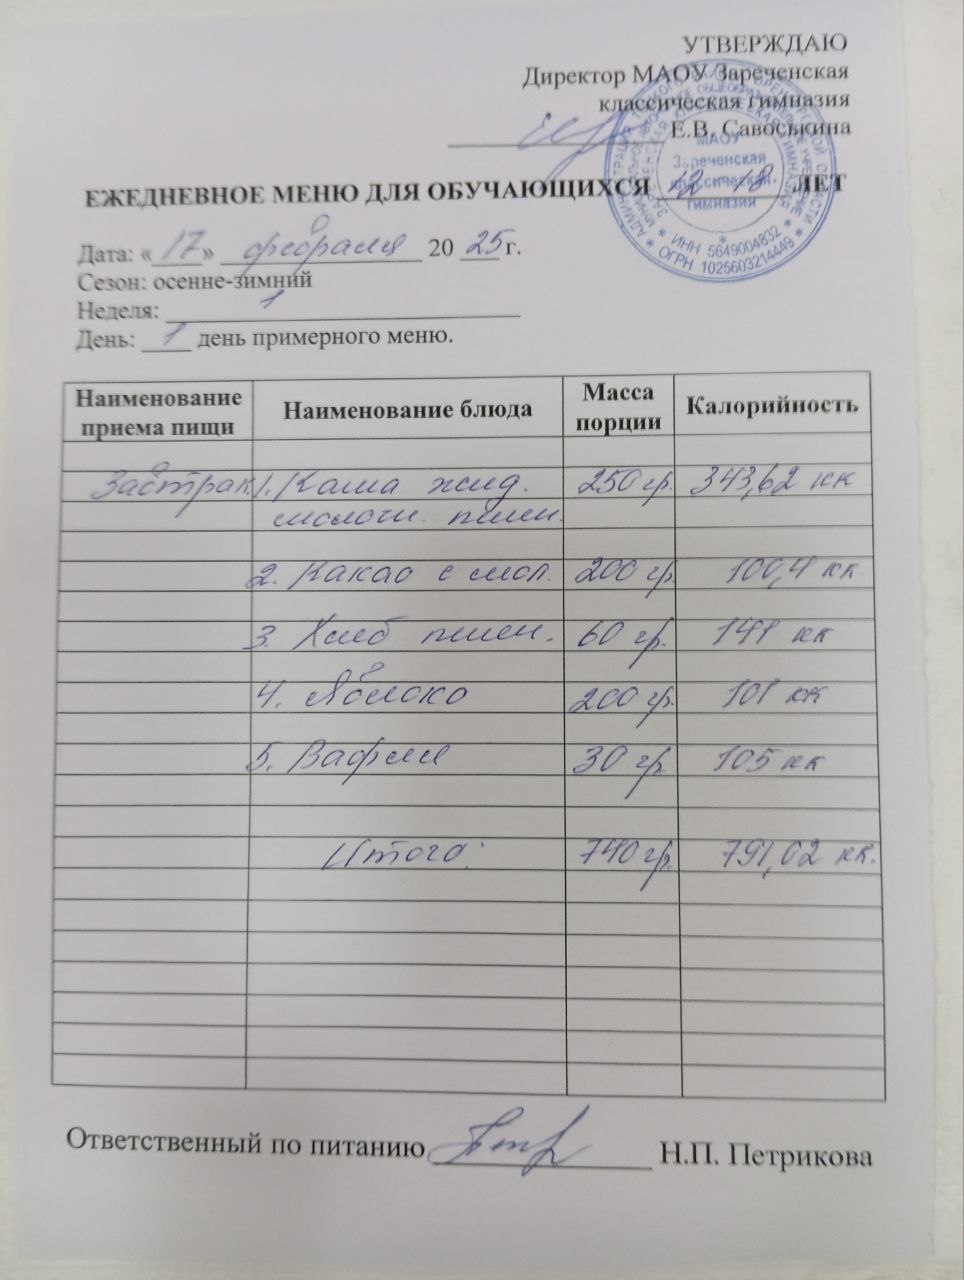 УТВЕРЖДАЮ
Директор МАОУ Зареченская
классическая гимназия
Е.В. Савоськина
МАОУ
Зареченская
классическая
гимназия
* ИНН 5649004832 *
* ОГРН 1025603214449 *
ЕЖЕДНЕВНОЕ МЕНЮ ДЛЯ ОБУЧАЮЩИХСЯ 12-18 ЛЕТ
Дата: «17» февраля 2025 г.
Сезон: осенне-зимний
Неделя: 1
День: 1 день примерного меню.
Наименование приема пищи Наименование блюда Масса порции Калорийность
Завтрак 1. Каша жид. 250 гр. 343,62 кк
молочн. пшен.
2. Какао с мол. 200 гр. 100,4 кк
3. Хлеб пшен. 60 гр. 141 кк
4. Яблоко 200 гр. 101 кк
5. Вафля 30 гр. 105 кк
Итого: 740 гр. 791,02 кк.
Ответственный по питанию Н.П. Петрикова